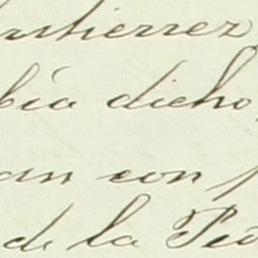 Gutierrez
bía dicho,
an con
de la